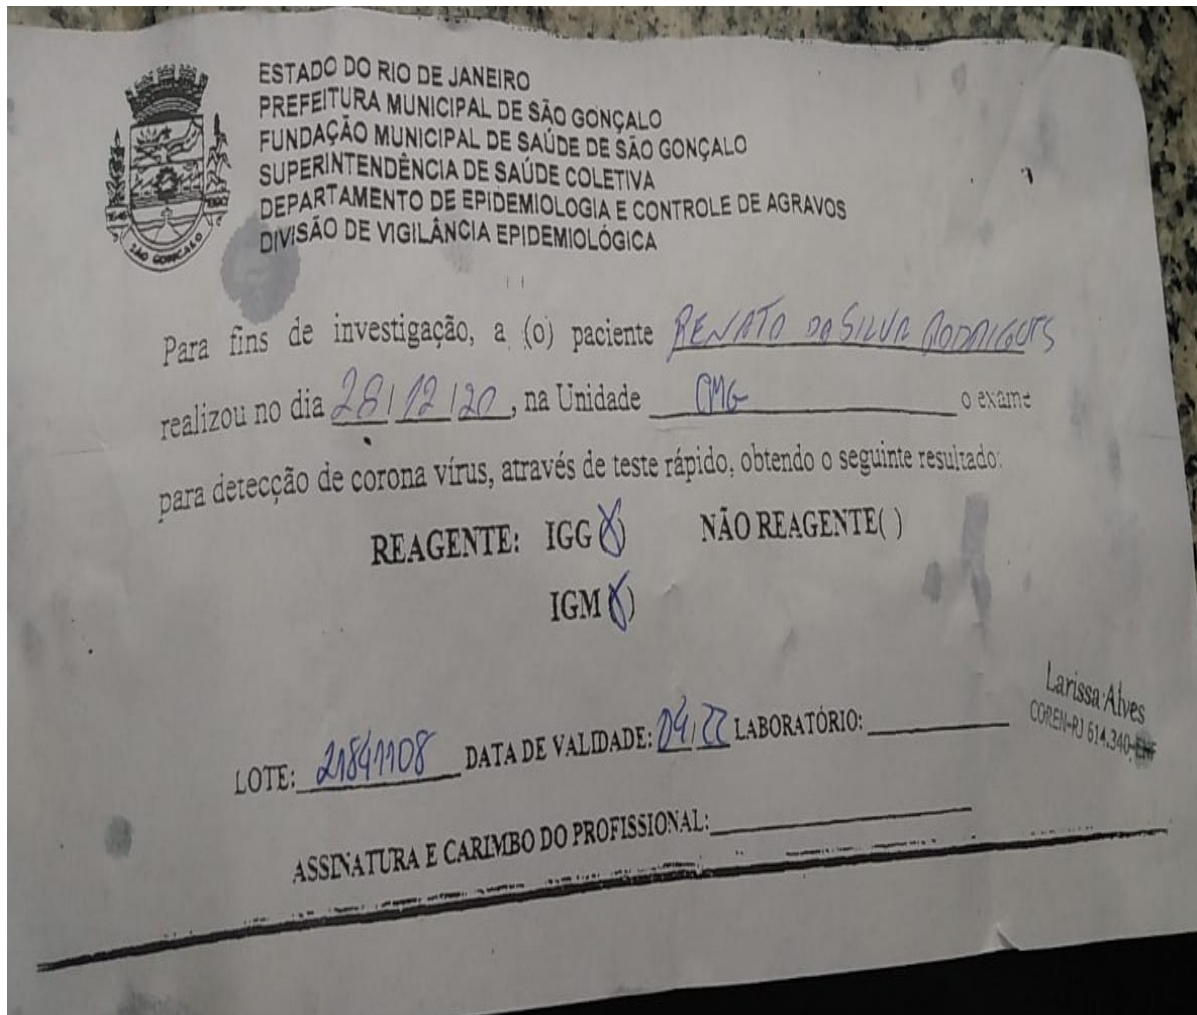 ESTADO DO RIO DE JANEIRO
PREFEITURA MUNICIPAL DE SÃO GONÇALO
FUNDAÇÃO MUNICIPAL DE SAÚDE DE SÃO GONÇALO
SUPERINTENDÊNCIA DE SAÚDE COLETIVA
DEPARTAMENTO DE EPIDEMIOLOGIA E CONTROLE DE AGRAVOS
DIVISÃO DE VIGILÂNCIA EPIDEMIOLÓGICA
SÃO GONÇALO
Para fins de investigação, a (o) paciente RENATO DA SILVA RODRIGUES
realizou no dia 28/12/20, na Unidade o exame
para detecção de corona vírus, através de teste rápido, obtendo o seguinte resultado:
REAGENTE: IGG (X) NÃO REAGENTE( )
IGM (X)
Larissa Alves
COREN-RJ 614.340-ENF
LOTE: 21841108 DATA DE VALIDADE: 04/22 LABORATÓRIO:
ASSINATURA E CARIMBO DO PROFISSIONAL: